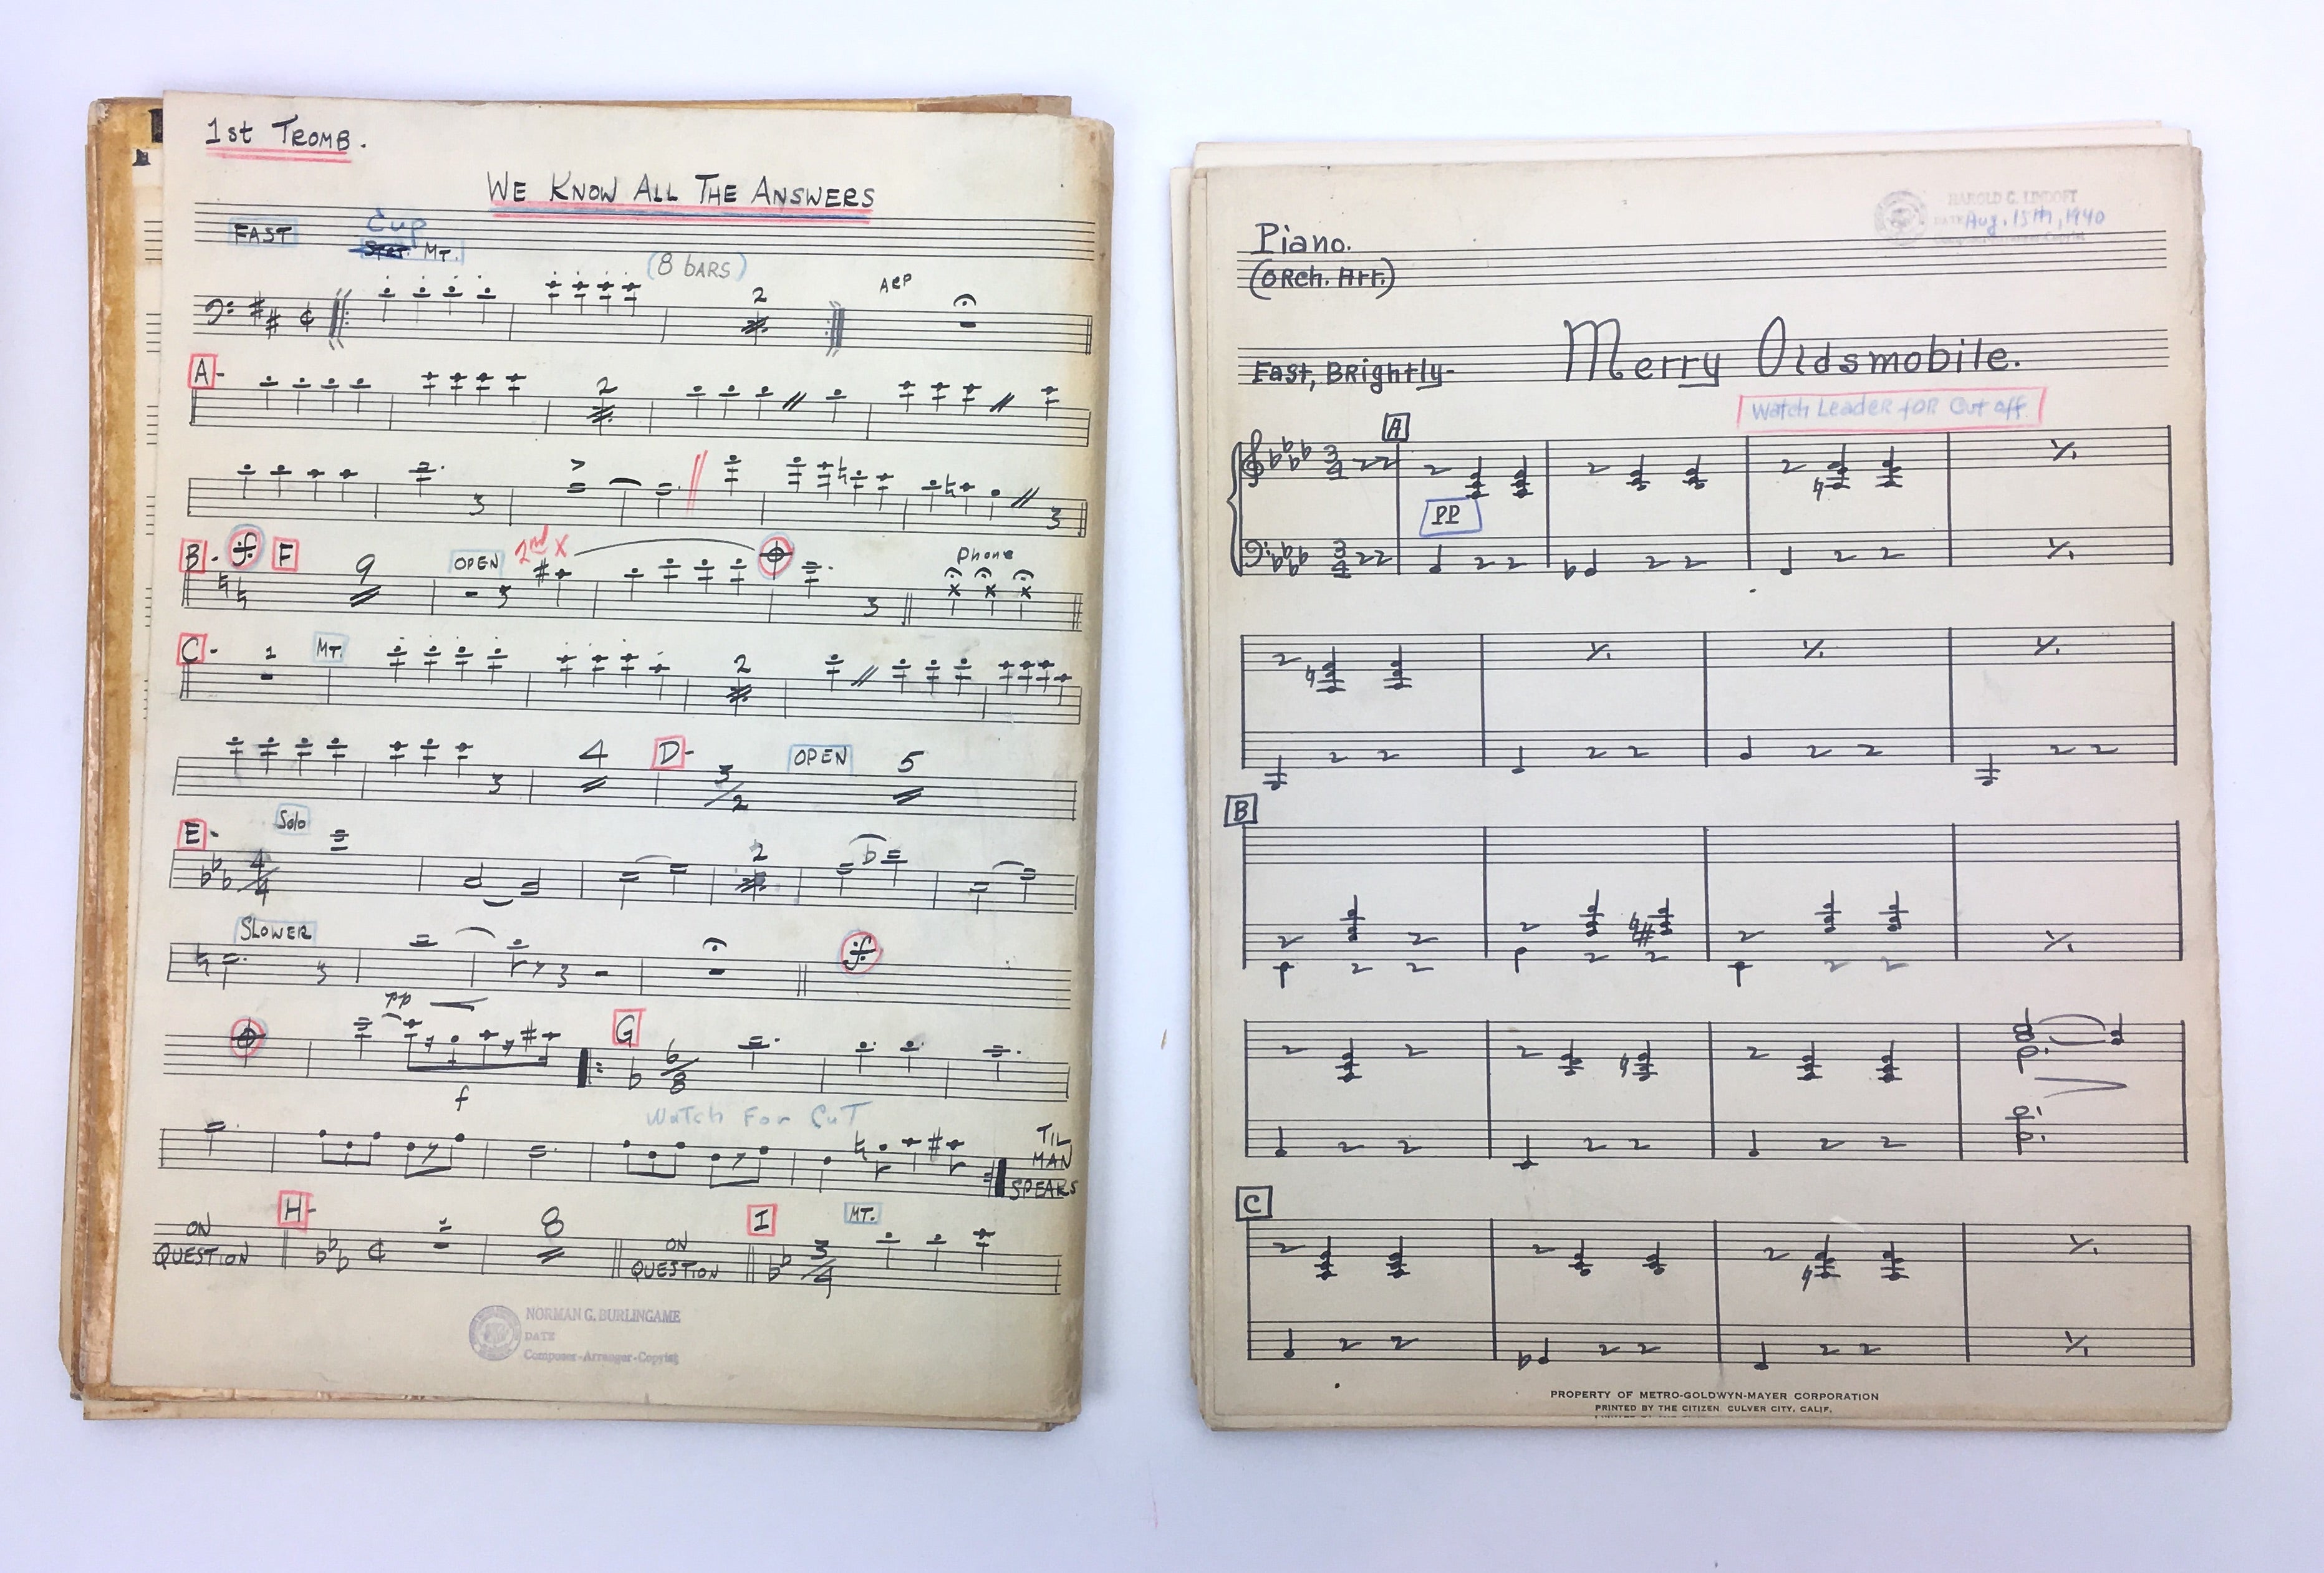 1st TROMB.
WE KNOW ALL THE ANSWERS
FAST
Cup
MT.
(8 BARS)
2
A-
2
3
3
B- F
9
OPEN
2nd X
3
3
Phone
C- 1 MT.
2
3
4
D-
3/2
OPEN
5
E- Solo
4/4
2
SLOWER
3
3
pp
G
6/8
f
WATCH FOR CUT
TIL
MAN
SPEAKS
ON
QUESTION
H-
8
ON
QUESTION
I
MT.
3/4
NORMAN G. BURLINGAME
DATE
Composer-Arranger-Copyist
HAROLD G. LINDOFT
DATE Aug. 15th, 1940
Piano.
(ORCh. Arr.)
Fast, BRightly-
Merry Oldsmobile.
Watch Leader for Cut off
A
3/4
PP
3/4
B
C
PROPERTY OF METRO-GOLDWYN-MAYER CORPORATION
PRINTED BY THE CITIZEN, CULVER CITY, CALIF.